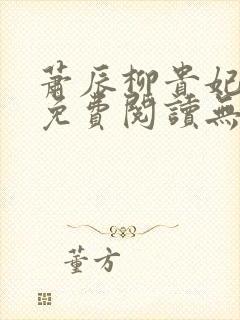 蕭辰柳貴妃
免費閱讀無
董方